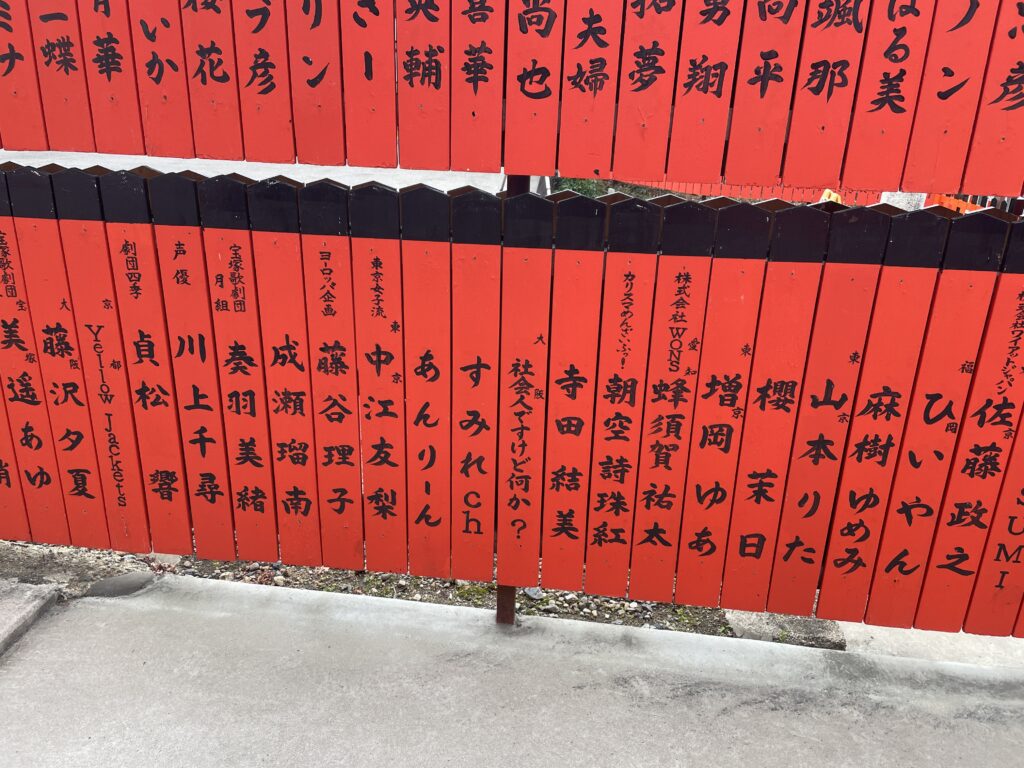 彦
ン
はる美
颯那
尚平
男翔
夢
夫婦
尚也
喜華
英輔
さー
リン
彦
花
いか
華
一蝶
ミナ
SUMI
佐藤政之
福岡 ひいやん
麻樹ゆめみ
東京 山本りた
櫻茉日
東京 増岡ゆあ
株式会社WONS 愛知 蜂須賀祐太
カリスマめんざいぶっ! 朝空詩珠紅
寺田結美
大阪 社会人ですけど何か?
すみれch
あんりーん
東京女子流 東京 中江友梨
ヨーロッパ企画 藤谷理子
成瀬瑠南
宝塚歌劇団 月組 奏羽美緒
声優 川上千尋
劇団四季 貞松響
京都 Yellow Jackets
大阪 藤沢夕夏
宝塚歌劇団 宝塚 美遥あゆ